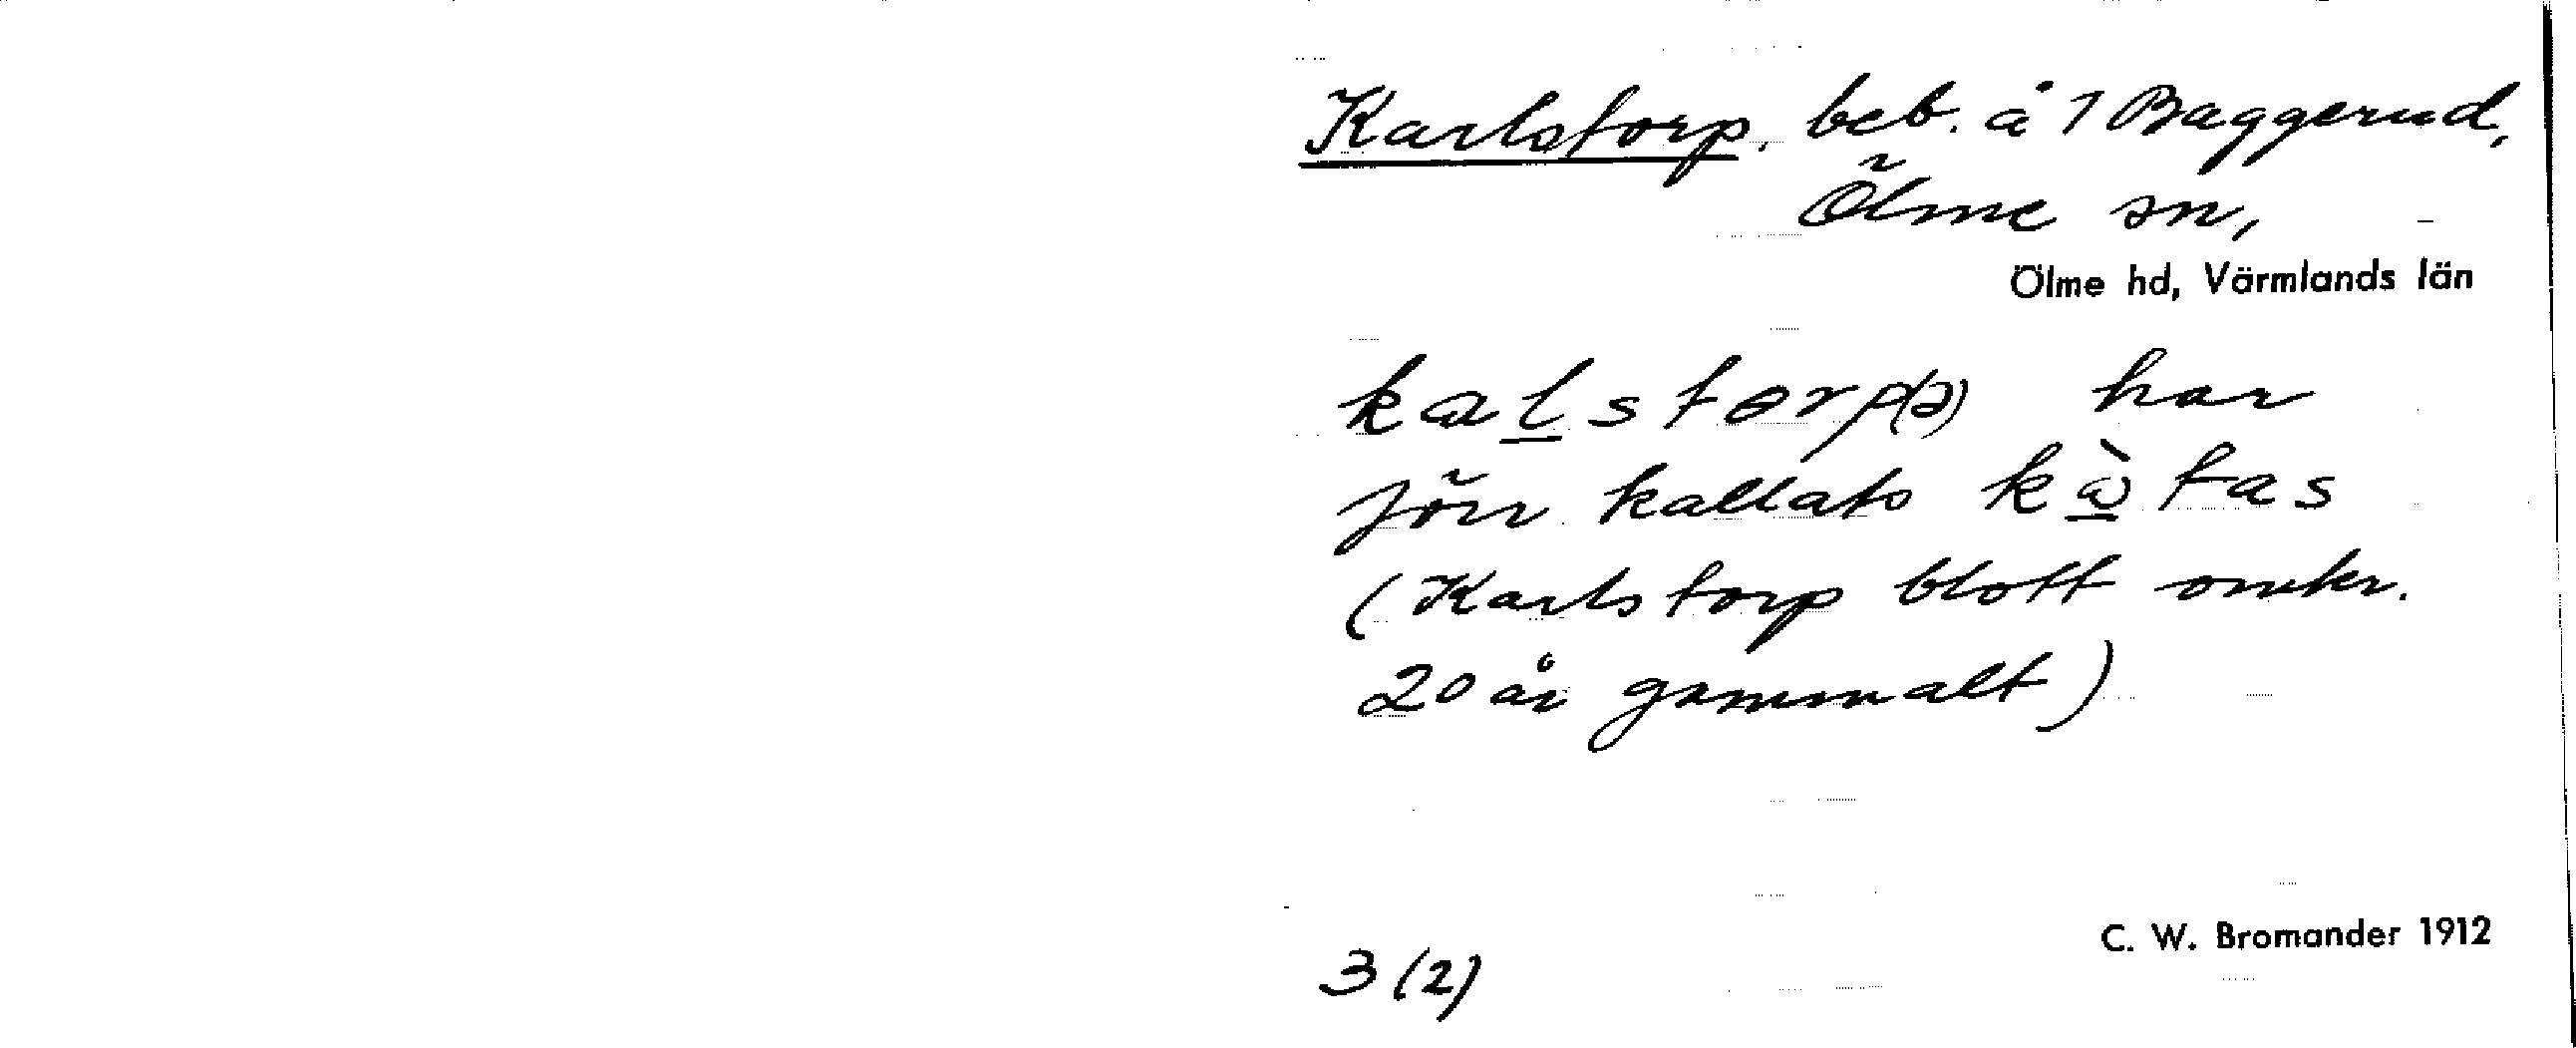 Karlstorp, beb. å 1 Baggerud,
Ölme sn,
Ölme hd, Värmlands län
kalstorp(ə) har
förr kallats kàtas
(Karlstorp blott omkr.
20 år gammalt)
C. W. Bromander 1912
3 (2)